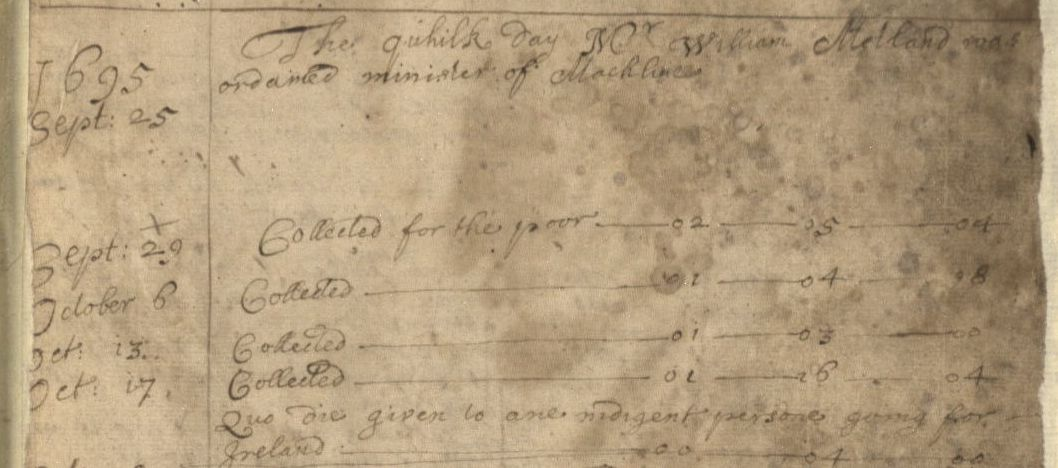 The quhilk day Mr William Metland was
1695 ordained minister of Machline
Sept: 25
Sept: 29 Collected for the poor 02 05 04
October 6 Collected 01 04 08
Oct: 13. Collected 01 03 00
Oct: 17. Collected 01 16 04
Quo die given to ane indigent persone going for
Ireland: 00 04 00